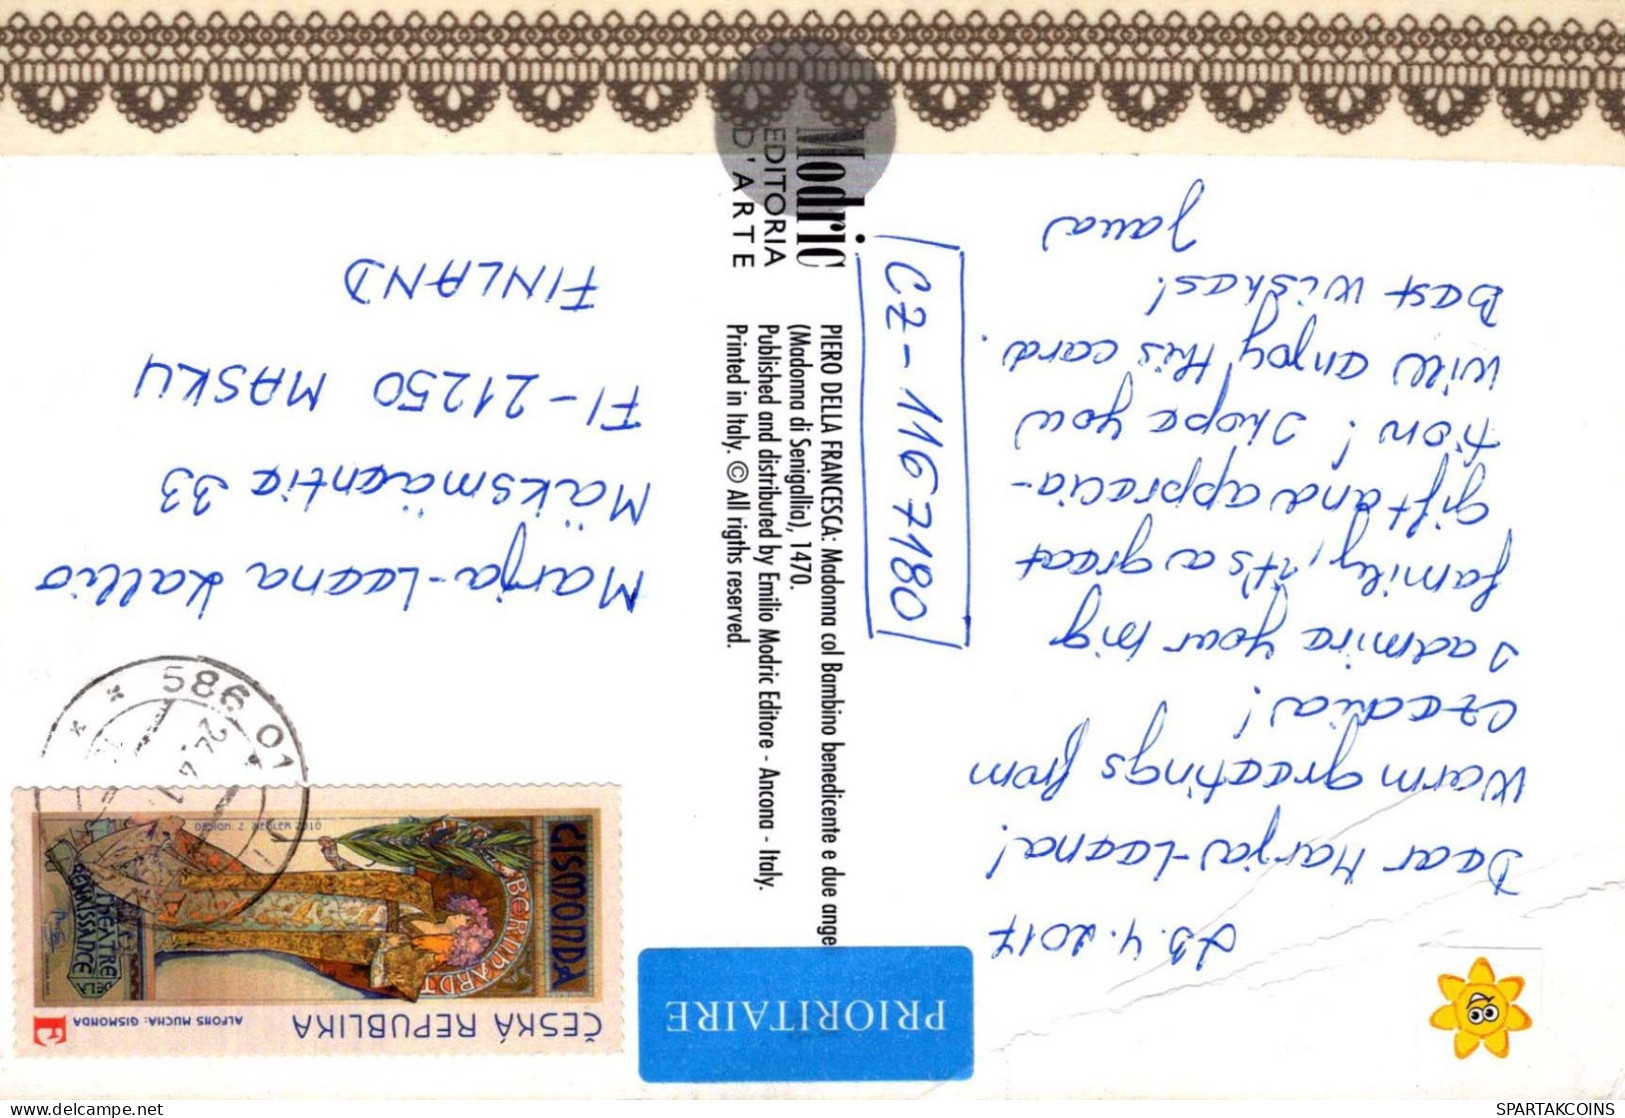 23.4.2017
Dear Marja-Leena!
Warm greetings from
Czechia!
I admire your big
family, it's a great
gift and apprecia-
tion! I hope you
will enjoy this card.
Best wishes!
Jana
CZ-1167180
PRIORITAIRE
PIERO DELLA FRANCESCA: Madonna col Bambino benedicente e due ange
(Madonna di Senigallia), 1470.
Published and distributed by Emilio Modric Editore - Ancona - Italy.
Printed in Italy. © All rigths reserved.
Modric
EDITORIA
D'ARTE
ČESKÁ REPUBLIKA
ALFONS MUCHA: GISMONDA
E
GISMONDA
BERNHARDT
THÉATRE
DE LA
RENAISSANCE
DESIGN: Z. ZIEGLER 2010
586 01
Marja-Leena Kallio
Mäksmäentie 33
FI-21250 MASKU
FINLAND
SPARTAKCOINS
www.delcampe.net